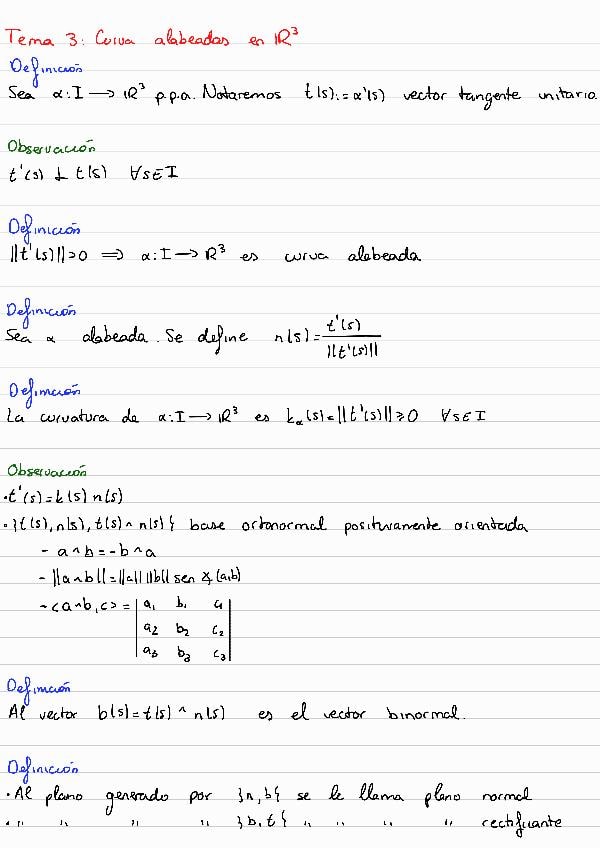 Tema 3: Curva alabeadas en ℝ³
Definición
Sea α: I → ℝ³ p.p.a. Notaremos t(s) := α'(s) vector tangente unitario.
Observación
t'(s) ⊥ t(s) ∀s∈I
Definición
||t'(s)|| > 0 ⟹ α: I → ℝ³ es curva alabeada
Definición
Sea α alabeada. Se define n(s) = t'(s) / ||t'(s)||
Definición
La curvatura de α: I → ℝ³ es k_α(s) = ||t'(s)|| ≥ 0 ∀s∈I
Observación
· t'(s) = k(s) n(s)
· {t(s), n(s), t(s) ^ n(s)} base ortonormal positivamente orientada
- a^b = -b^a
- ||a^b|| = ||a|| ||b|| sen ∡(a,b)
- <a^b, c> = | a₁ b₁ c₁
a₂ b₂ c₂
a₃ b₃ c₃ |
Definición
Al vector b(s) = t(s) ^ n(s) es el vector binormal.
Definición
· Al plano generado por {n, b} se le llama plano normal
· " " " " {b, t} " " " " rectificante